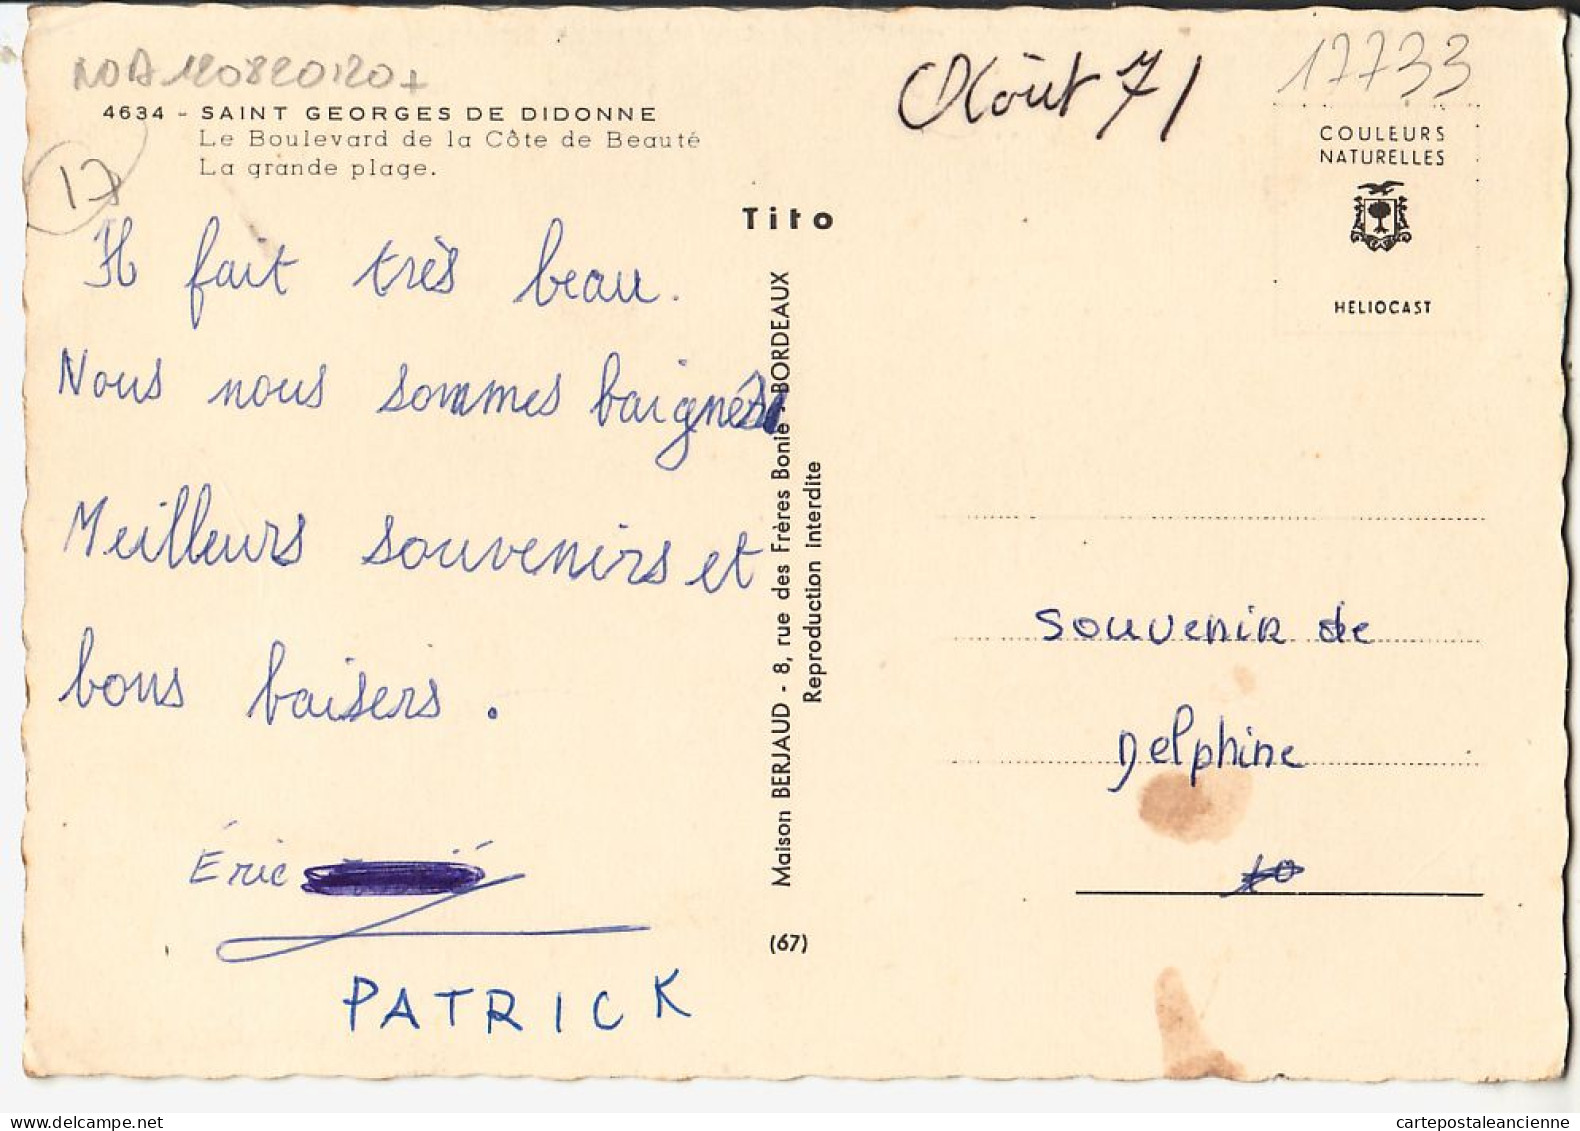 NOA 120820120+
4634 - SAINT GEORGES DE DIDONNE
Le Boulevard de la Côte de Beauté
La grande plage.
17
Il fait très beau.
Nous nous sommes baignés
Meilleurs souvenirs et
bons baisers.
Éric
PATRICK
Tito
Maison BERJAUD - 8, rue des Frères Bonie - BORDEAUX
Reproduction interdite
(67)
Août 71
17733
COULEURS
NATURELLES
HELIOCAST
souvenir de
Delphine
cartepostaleancienne